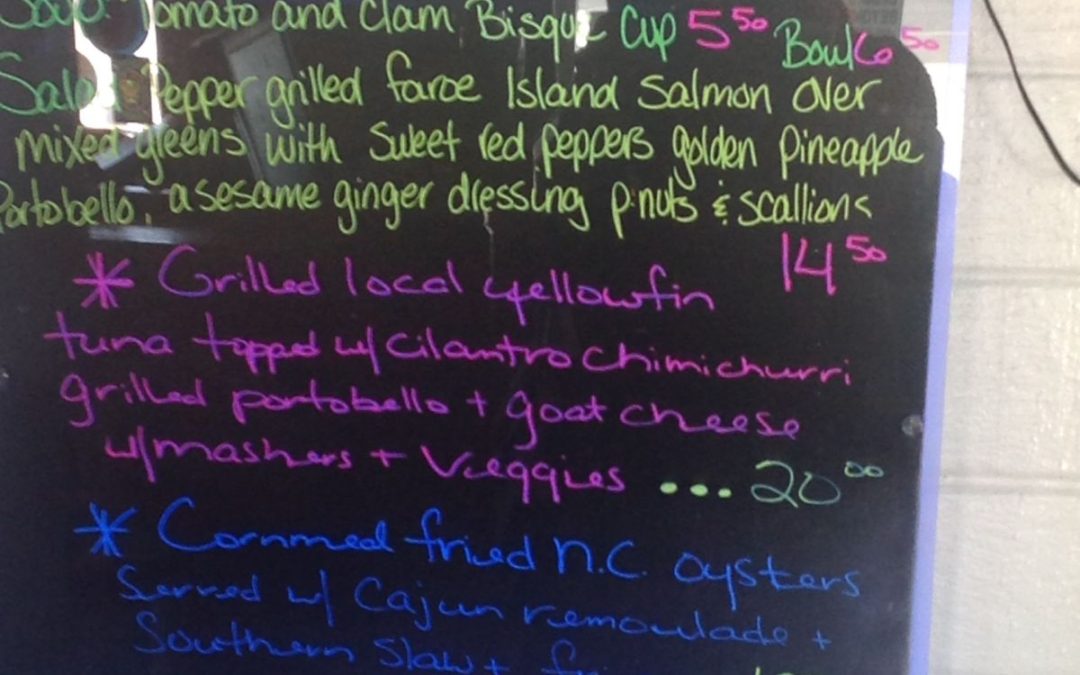 Soup Tomato and Clam Bisque Cup 5 50 Bowl 6 50
Salad Pepper grilled faroe Island Salmon over
mixed greens with Sweet red peppers golden Pineapple
Portobello, a sesame ginger dressing p.nuts & scallions
14 50
* Grilled local yellowfin
tuna topped w/ cilantro chimichurri
grilled portobello + goat cheese
w/mashers + Veggies ... 20 00
* Cornmeal fried N.C. oysters
Served w/ Cajun remoulade +
Southern Slaw +